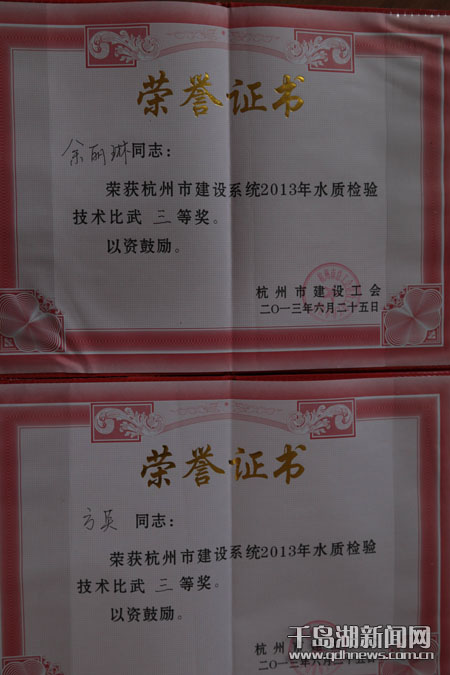 荣誉证书
余丽琳同志：
荣获杭州市建设系统2013年水质检验
技术比武 三 等奖。
以资鼓励。
杭州市建设工会
二〇一三年六月二十五日
荣誉证书
方英 同志：
荣获杭州市建设系统2013年水质检验
技术比武 三 等奖。
以资鼓励。
杭州市
二〇一三年六月二十五日
千岛湖新闻网
www.qdhnews.com.cn